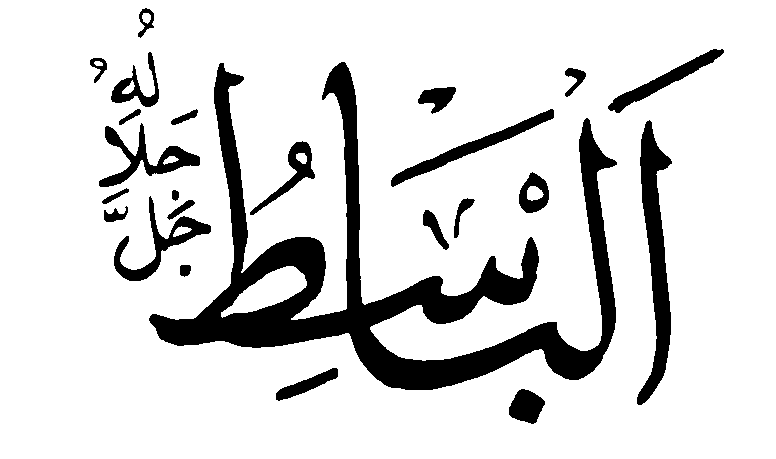 اَلْبَاسِطُ
جَلَّ جَلَالُهُ